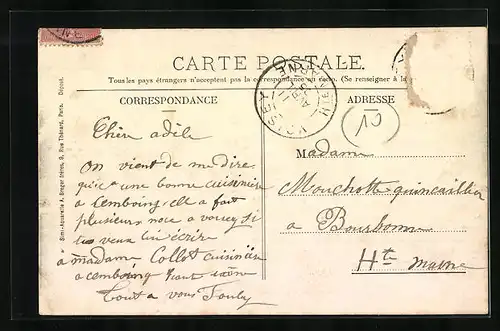 CARTE POSTALE.
Tous les pays étrangers n'acceptent pas la correspondance au recto. (Se renseigner à la
CORRESPONDANCE
ADRESSE
Simi-Aquarelle A. Breger frères, 9, Rue Thénard, Paris. Déposé.
VOISEY
HTE MARNE
10
Chère adile
On vient de me dire
qu'il a une bonne cuisinière
a Cemboing elle a fait
plusieurs noce a voisey si
tu veux lui écrire
à madame Collot cuisinière
a cemboing haut saône
Tout a vous
Madame
Mouchotte quincaillier
a Bourbonne
Hte marne